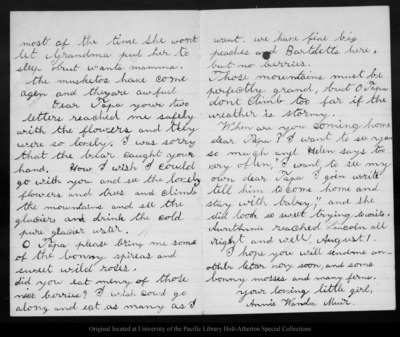 most of the time she wont
let Grandma put her to
sleep but wants mamma.
the musketos have come
agen and they are awful
Dear Papa your two
letters reached me safely
with the flowers and they
were so lovely. I was sorry
that the briar caught your
hand. How I wish I could
go with you and see the lovely
flowers and trees and climb
the mountains and see the
glaciers and drink the cold
pure glacier water.
O Papa please bring me some
of the bonny spireas and
sweet wild roses.
did you eat meny of those
nice berries? I wish I could go
along and eat as many as I
want. we have fine big
peaches and Bartletts here,
but no berries.
Those mountains must be
perfectly grand, but O Papa
dont climb too far if the
weather is stormy.
When are you coming home
dear Papa? I want to see you
so much and Helen says too
very often, "I want to see my
own dear Papa I goin write
tell him to come home and
stay with baby," and she
did look so sweet trying to write.
Aunt Annie reached Lincoln all
right and well, August 1.
I hope you will send me an-
other letter very soon, and some
bonny mosses and many ferns.
your loving little girl,
Annie Wanda Muir.
Original located at University of the Pacific Library Holt-Atherton Special Collections